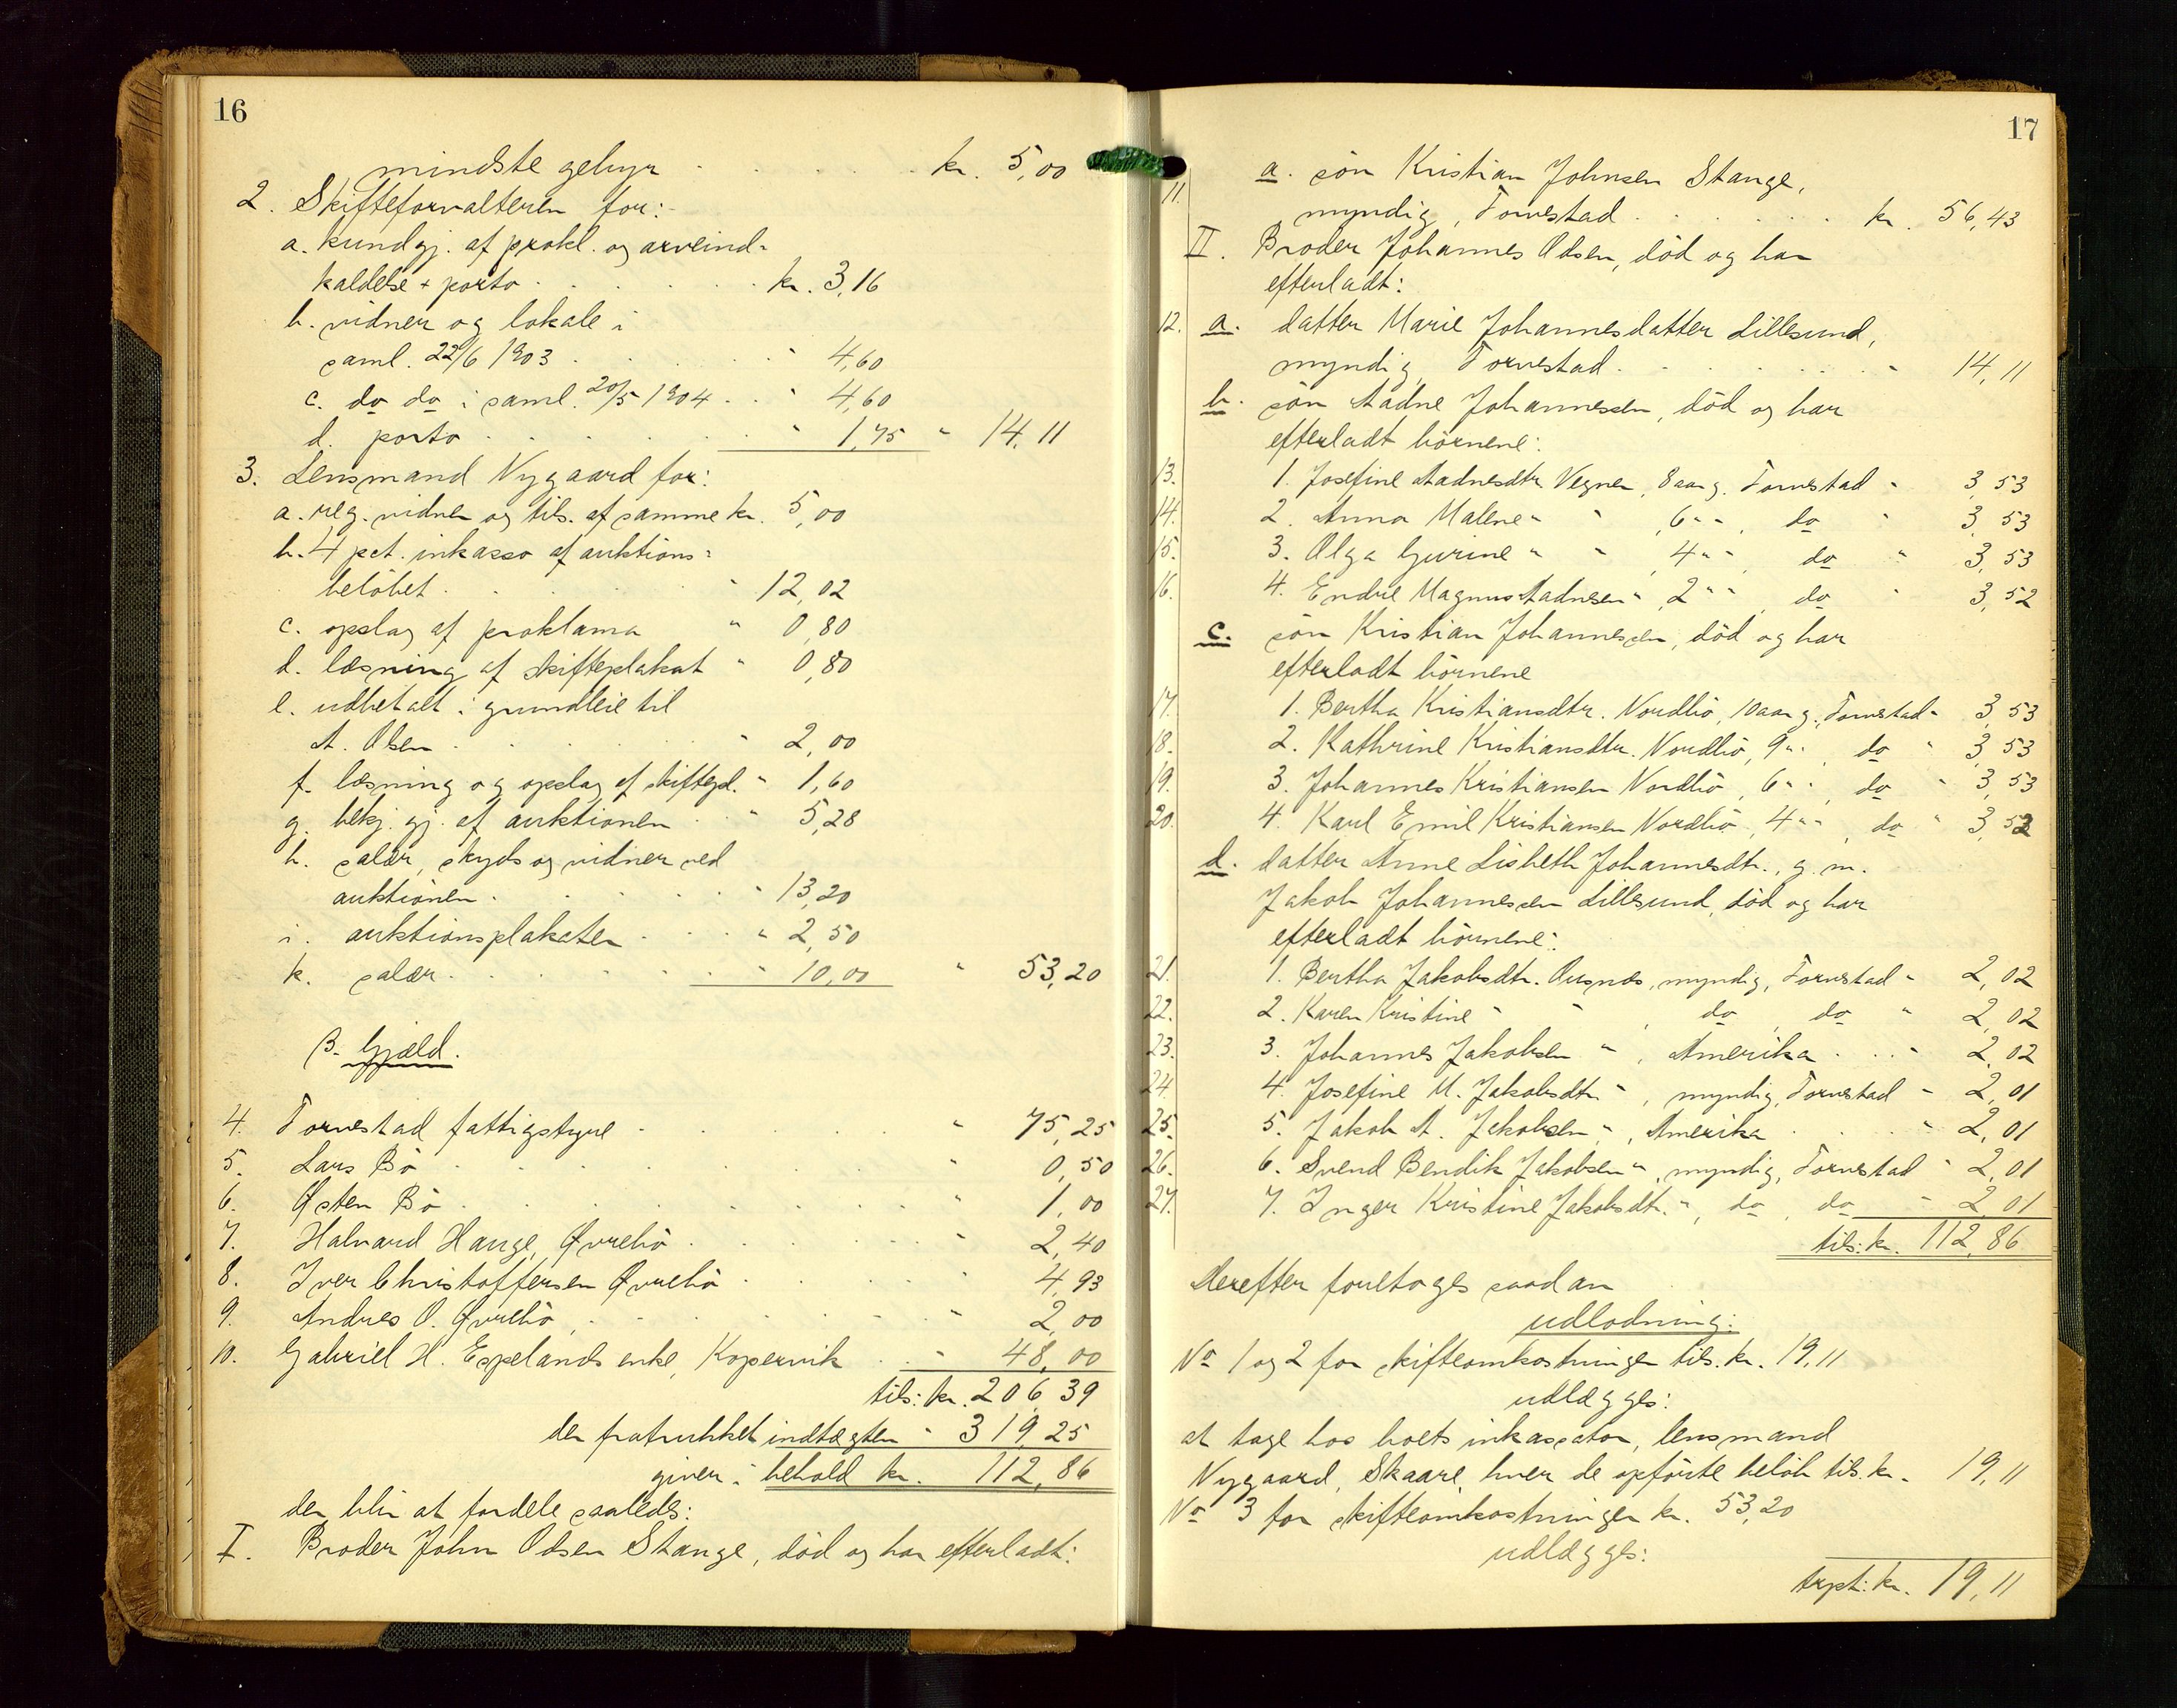 16
mindste gebyr . . . . . kr. 5,00
2. Skifteforvalteren for:
a. kundgj. af prokl. og arveind-
kaldelse + porto . . . . . kr. 3,16
b. vidner og lokale i
saml. 22/6 1903 . . . . " 4,60
c. do do i saml. 20/5 1904 . . " 4,60
d. porto . . . . . . " 1,75 " 14,11
3. Lensmand Nygaard for:
a. reg. vidner og tils. af samme kr. 5,00
b. 4 pct. inkasso af auktions-
beløbet . . . . . " 12,02
c. opslag af proklama " 0,80
d. læsning af skifteplakat " 0,80
e. udbetalt i grundleie til
A. Olsen . . . . . " 2,00
f. læsning og opslag af skiftepl. " 1,60
g. bekj. gj. af auktionen . . " 5,28
h. salær, skyds og vidner ved
auktionen . . . . . " 13,20
i. auktionsplakaten . . . " 2,50
k. salær . . . . . . " 10,00 " 53,20
B. Gjæld.
4. Torvestad fattigstyre . . . . . " 75,25
5. Lars Bø . . . . . . " 0,50
6. Østen Bø . . . . . . " 1,00
7. Halvard Hauge, Øvrebø . . . . " 2,40
8. Iver Christoffersen Øvrebø . . . . " 4,93
9. Andres O. Øvrebø . . . . . " 2,00
10. Gabriel H. Espelands enke, Kopervik . . " 48,00
tils: kr. 206,39
der fratrukket indtægten " 319,25
giver i behold kr. 112,86
der blir at fordele saaledes:
I. Broder John Olsen Stange, död og har efterladt:
17
a. sön Kristian Johnsen Stange,
11. myndig, Torvestad . . . . . . kr. 56,43
II. Broder Johannes Olsen, död og har
efterladt:
12. a. datter Marie Johannesdatter Lillesund,
myndig, Torvestad . . . . . . " 14,11
b. sön Aadne Johannessen, död og har
efterladt börnene:
13. 1. Josefine Aadnesdtr. Vegner, 8 aar g. Torvestad " 3,53
14. 2. Anna Malene " " , 6 " " , do " 3,53
15. 3. Olga Gurine " " , 4 " " , do " 3,53
16. 4. Endre Magnus Aadnesen " , 2 " " , do " 3,52
c. sön Kristian Johannessen, död og har
efterladt börnene
17. 1. Bertha Kristiansdtr. Nordbö, 10 aar g. Torvestad " 3,53
18. 2. Kathrine Kristiansdtr. Nordbö, 9 " " , do " 3,53
19. 3. Johannes Kristiansen Nordbö, 6 " " , do " 3,53
20. 4. Karl Emil Kristiansen Nordbö, 4 " " , do " 3,52
d. datter Anne Lisbeth Johannesdtr., g. m.
Jakob Johannessen Lillesund, död og har
efterladt börnene:
21. 1. Bertha Jakobsdtr. Ousnes, myndig, Torvestad " 2,02
22. 2. Karen Kristine " " , do , do " 2,02
23. 3. Johannes Jakobsen " , Amerika . . . " 2,02
24. 4. Josefine M. Jakobsdtr. " , myndig, Torvestad " 2,01
25. 5. Jakob A. Jakobsen " , Amerika . . . " 2,01
26. 6. Svend Bendik Jakobsen ", myndig, Torvestad " 2,01
27. 7. Inger Kristine Jakobsdtr. ", do , do " 2,01
tils: kr. 112,86
Derefter foretoges saadan
udlodning:
No 1 og 2 for skifteomkostninger tils. kr. 19,11
udlægges:
at tage hos boets inkassator, lensmand
Nygaard, Skaare, hver de opførte beløb tils. kr. 19,11
No 3 for skifteomkostninger kr. 53,20
udlægges:
trpt: kr. 19,11